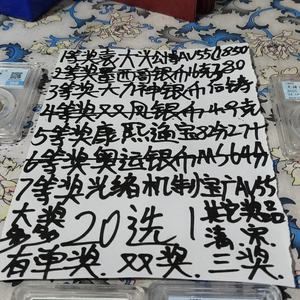 1等奖袁大头AU55 1850
2等奖墨西哥银币780
3等奖大力神银币后铸
4等奖双凤银币49克
5等奖康熙通宝82分271
6等奖奥运银币MS64分
7等奖光绪机制宝广AU55
大奖多多
20选1
其它奖品清宋
有单奖.双奖.三奖.